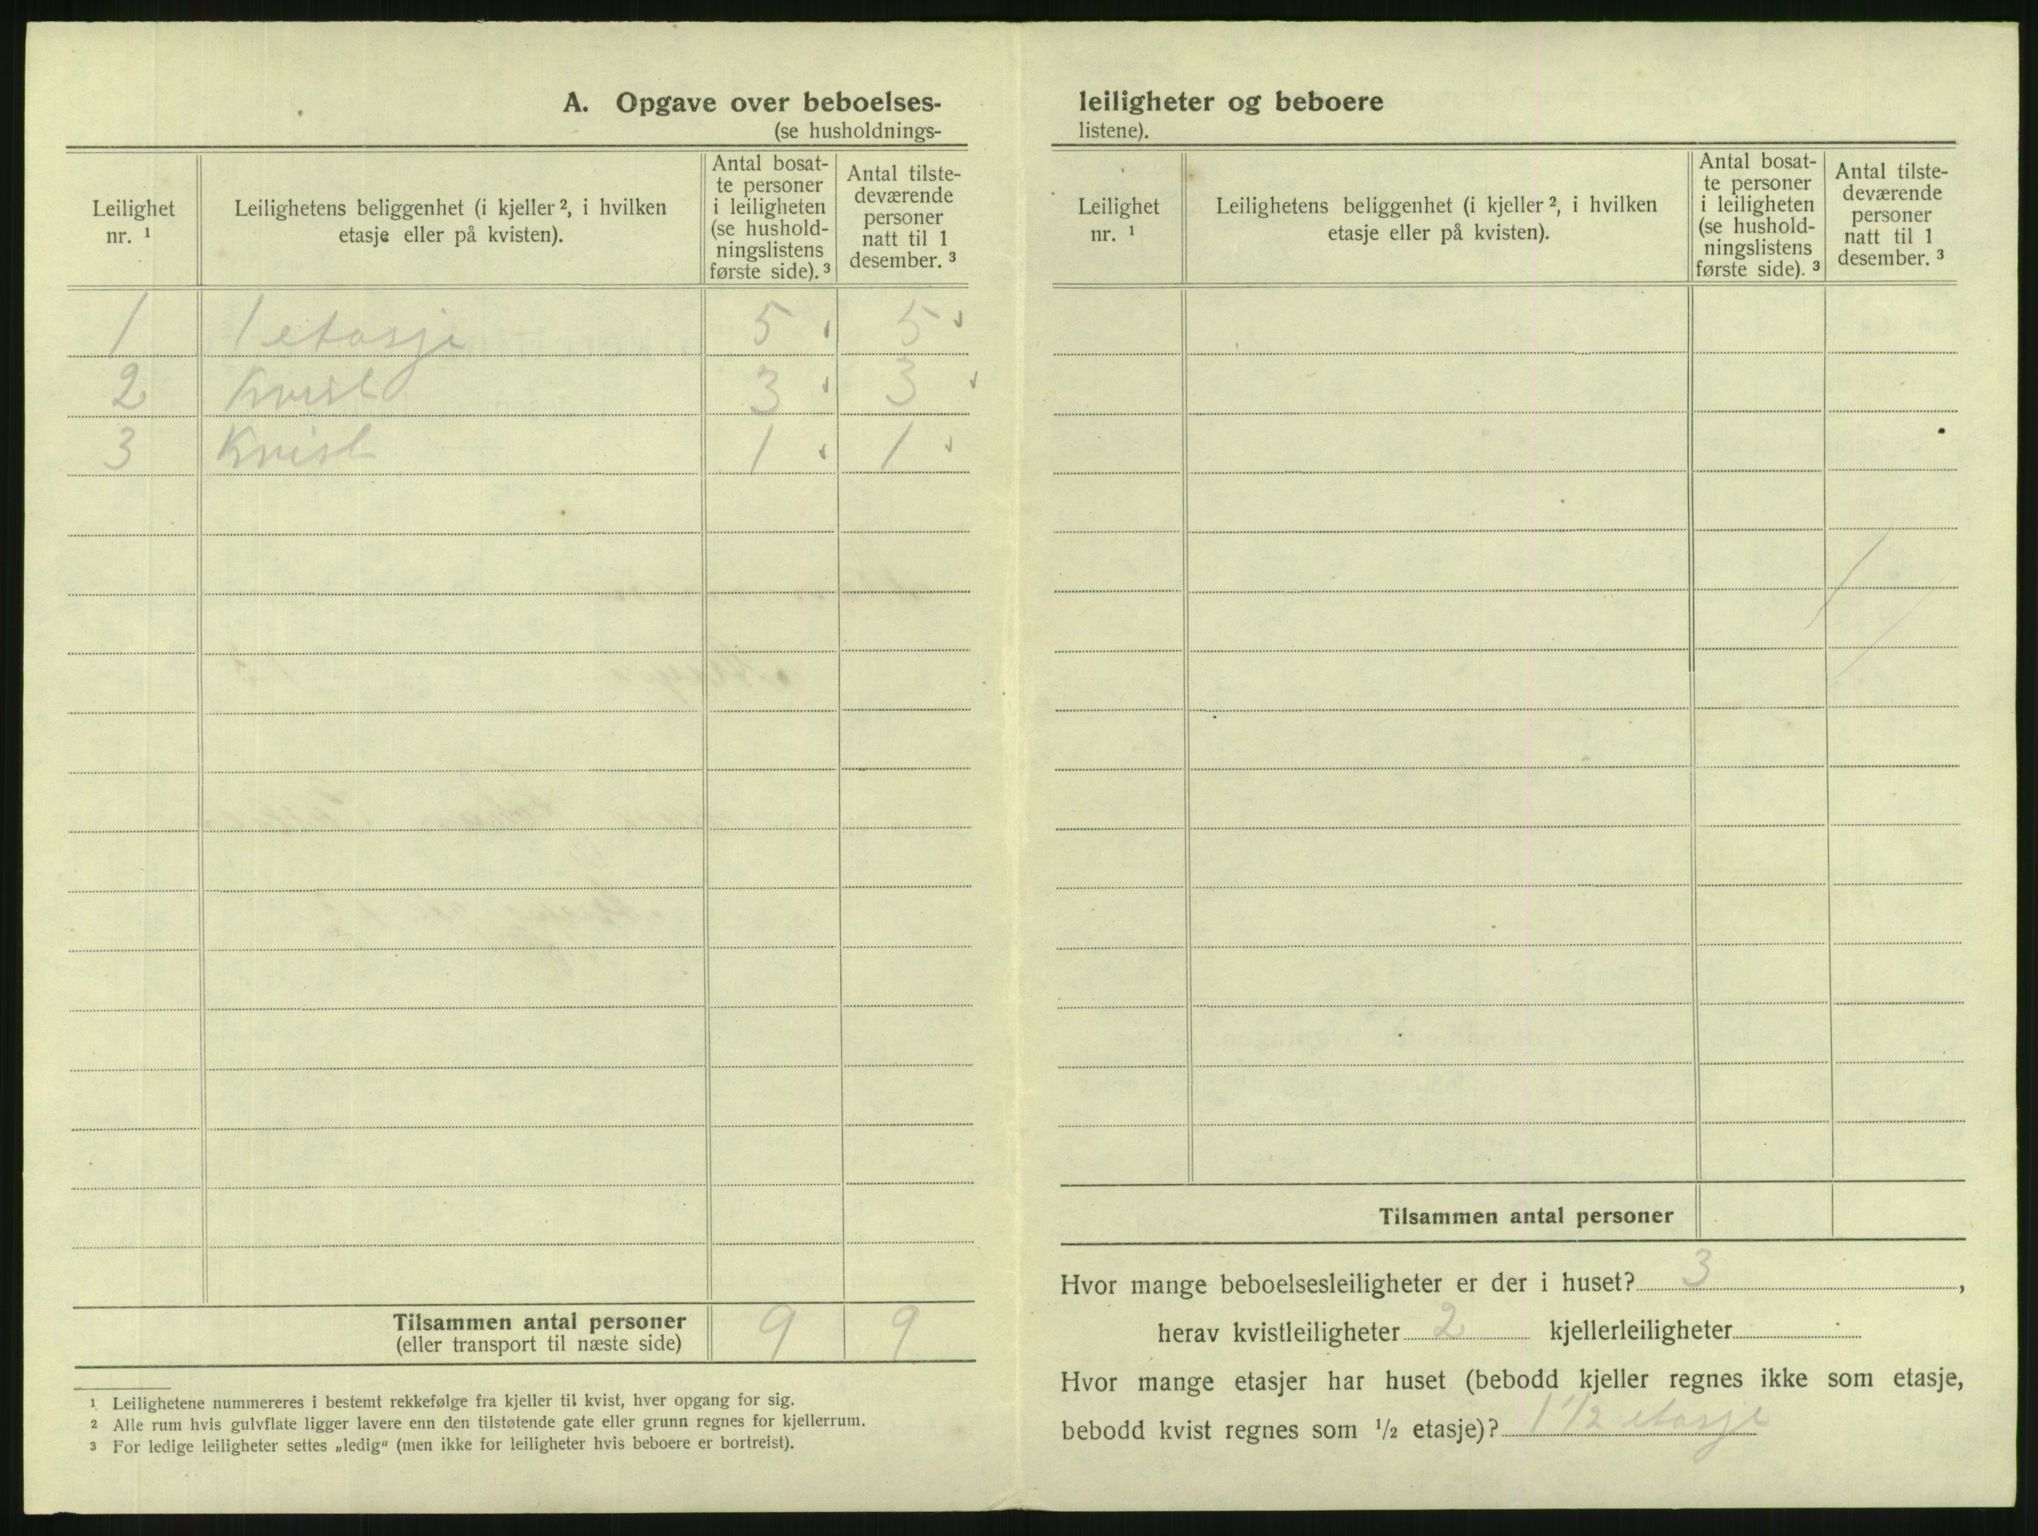 A. Opgave over beboelses-
(se husholdnings-
Leilighet nr. ¹
Leilighetens beliggenhet (i kjeller ², i hvilken
etasje eller på kvisten).
Antal bosat-
te personer
i leiligheten
(se hushold-
ningslistens
første side). ³
Antal tilste-
deværende
personer
natt til 1
desember. ³
1 1 etasje 5 5
2 Kvist 3 3
3 Kvist 1 1
Tilsammen antal personer 9 9
(eller transport til næste side)
¹ Leilighetene nummereres i bestemt rekkefølge fra kjeller til kvist, hver opgang for sig.
² Alle rum hvis gulvflate ligger lavere enn den tilstøtende gate eller grunn regnes for kjellerrum.
³ For ledige leiligheter settes „ledig“ (men ikke for leiligheter hvis beboere er bortreist).
leiligheter og beboere
listene).
Leilighet nr. ¹
Leilighetens beliggenhet (i kjeller ², i hvilken
etasje eller på kvisten).
Antal bosat-
te personer
i leiligheten
(se hushold-
ningslistens
første side). ³
Antal tilste-
deværende
personer
natt til 1
desember. ³
Tilsammen antal personer
Hvor mange beboelsesleiligheter er der i huset? 3 ,
herav kvistleiligheter 2 kjellerleiligheter
Hvor mange etasjer har huset (bebodd kjeller regnes ikke som etasje,
bebodd kvist regnes som ½ etasje)? 1 1/2 etasje